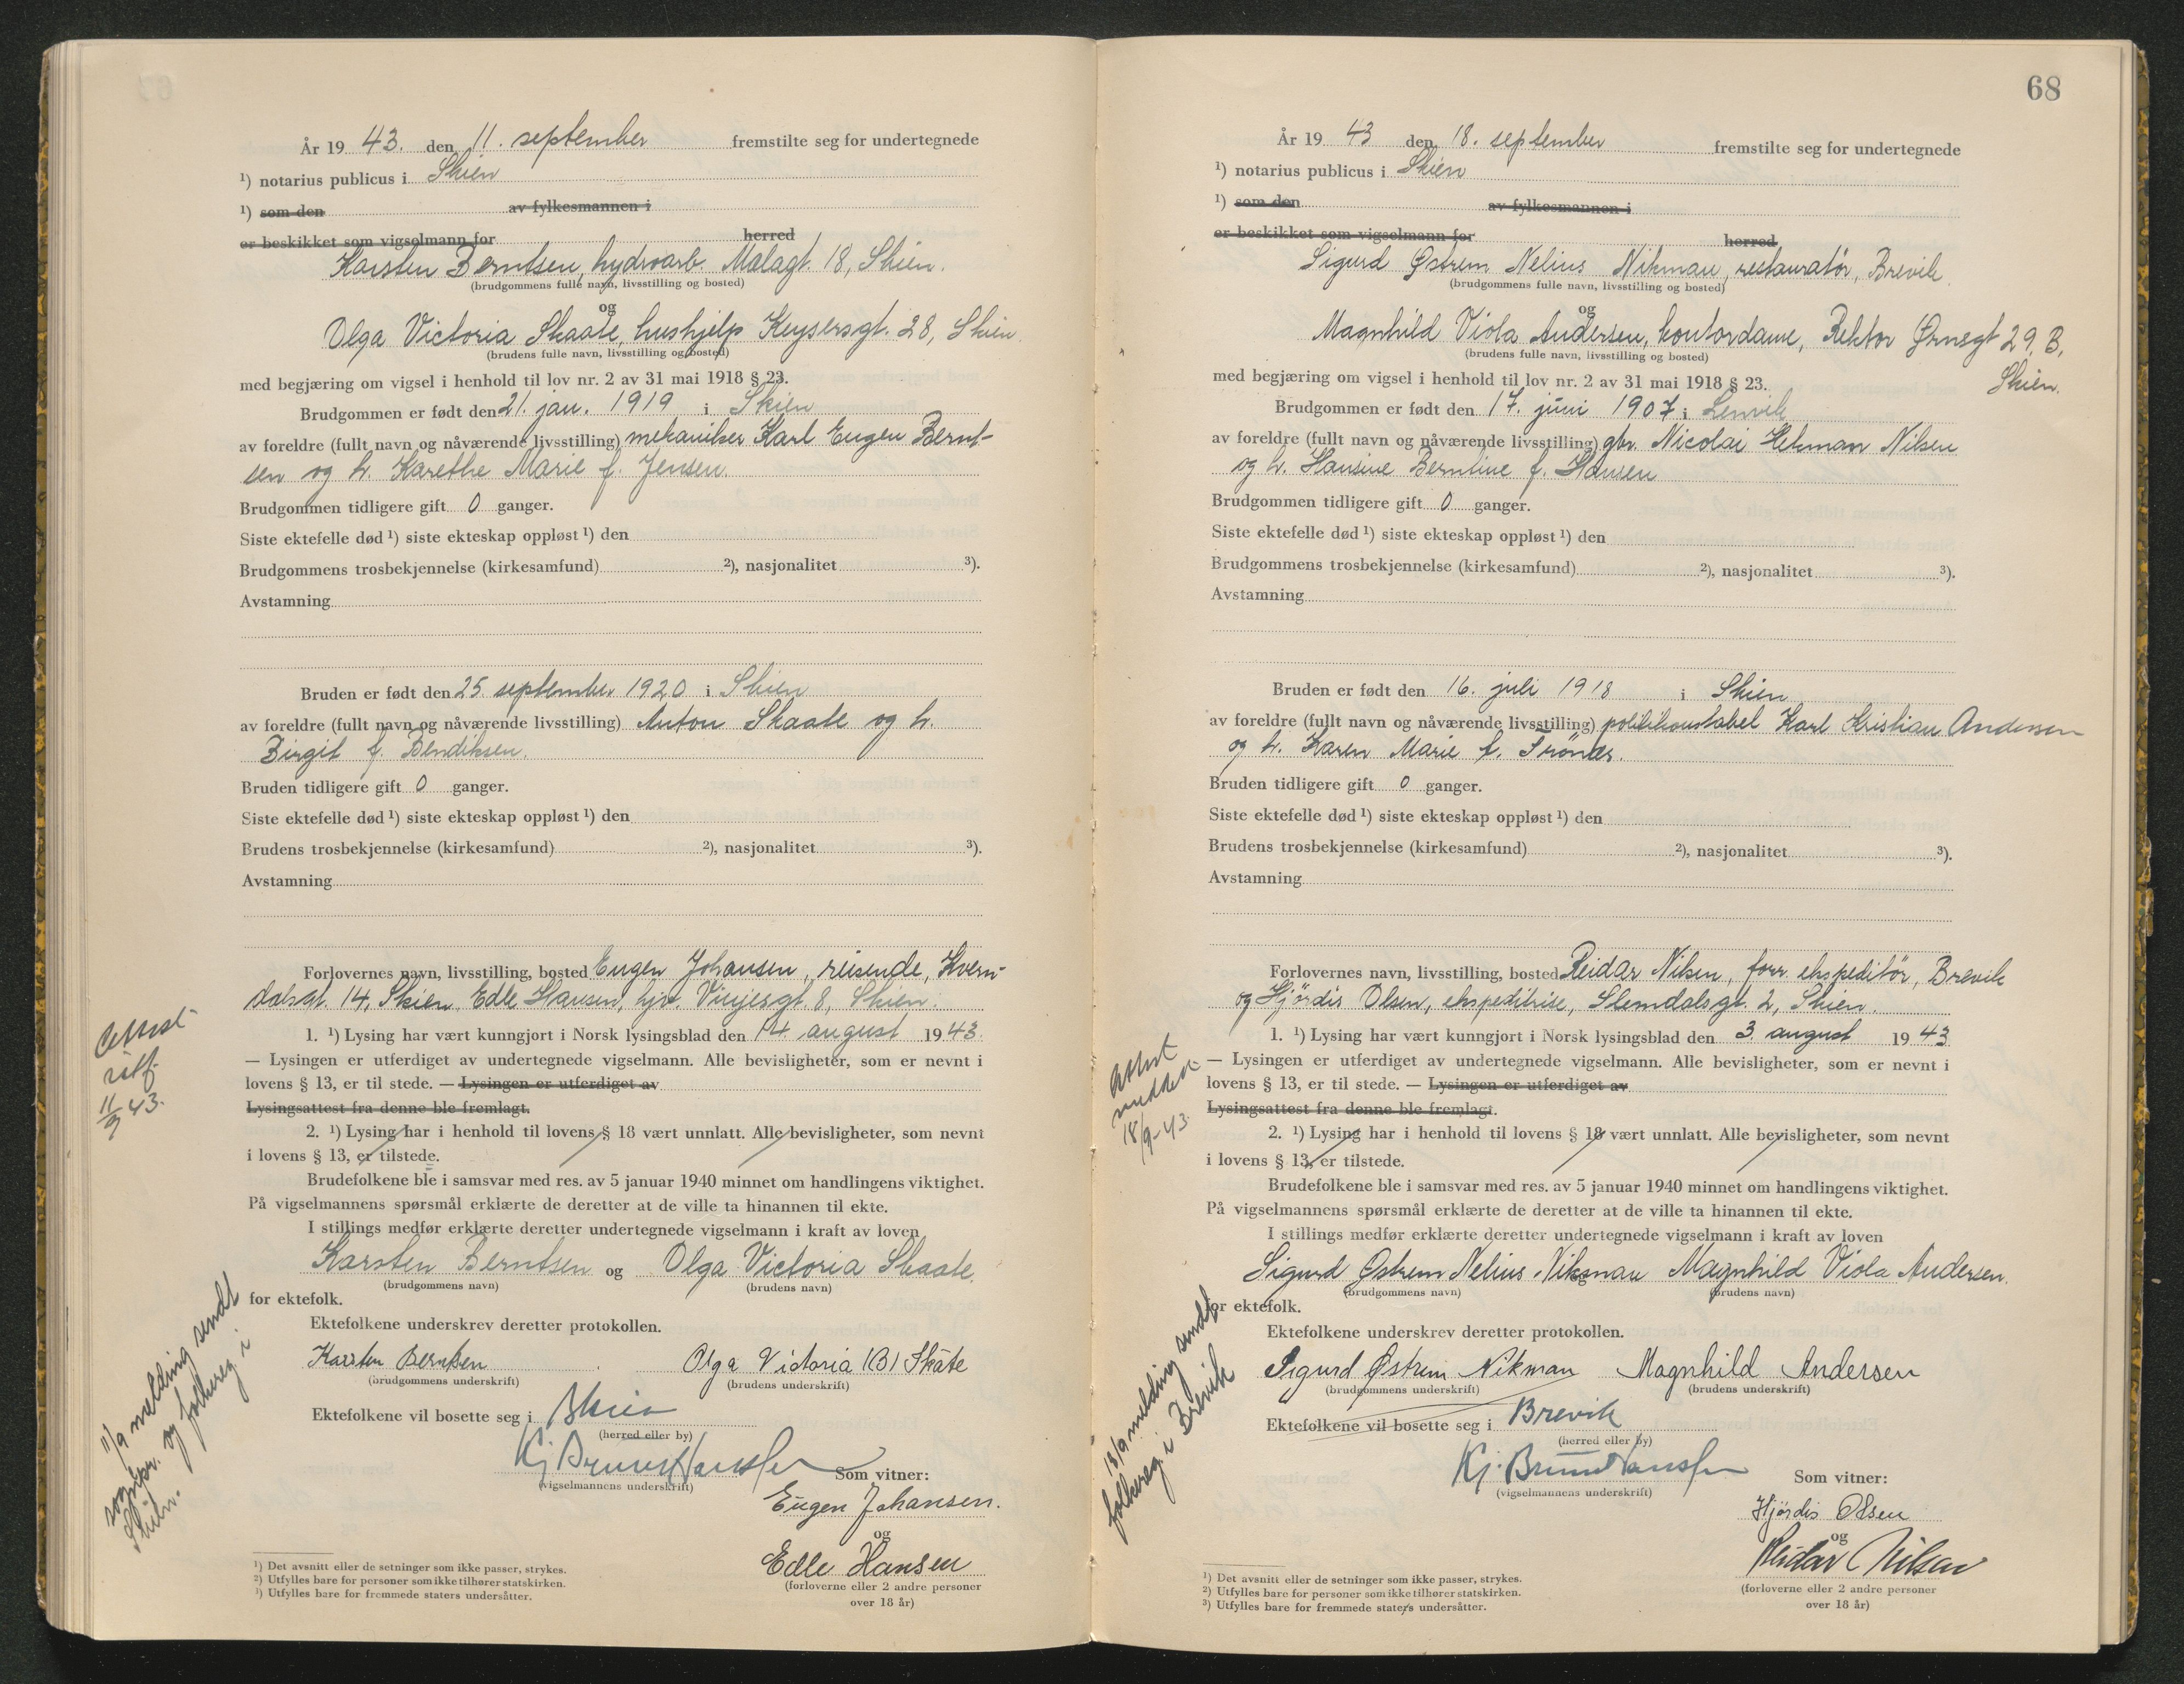 År 19 43. den 11. september fremstilte seg for undertegnede
¹) notarius publicus i Skien
¹) som den av fylkesmannen i
er beskikket som vigselmann for herred
Karsten Berntsen, hydroarb. Malagt. 18, Skien.
(brudgommens fulle navn, livsstilling og bosted)
og
Olga Victoria Skaate, hushjelp Keysersgt. 28, Skien.
(brudens fulle navn, livsstilling og bosted)
med begjæring om vigsel i henhold til lov nr. 2 av 31 mai 1918 § 23.
Brudgommen er født den 21. jan. 1919 i Skien
av foreldre (fullt navn og nåværende livsstilling) mekaniker Karl Eugen Bernt-
sen og h. Karethe Marie f. Jensen.
Brudgommen tidligere gift 0 ganger.
Siste ektefelle død ¹) siste ekteskap oppløst ¹) den
Brudgommens trosbekjennelse (kirkesamfund) ²), nasjonalitet ³).
Avstamning
Bruden er født den 25. september 1920 i Skien
av foreldre (fullt navn og nåværende livsstilling) Anton Skaate og h.
Birgit f. Bendiksen.
Bruden tidligere gift 0 ganger.
Siste ektefelle død ¹) siste ekteskap oppløst ¹) den
Brudens trosbekjennelse (kirkesamfund) ²), nasjonalitet ³).
Avstamning
Forlovernes navn, livsstilling, bosted Eugen Johansen, reisende, Kvern-
dalsgt. 14, Skien. Edle Hansen, hjv. Vinjesgt. 8, Skien.
1. ¹) Lysing har vært kunngjort i Norsk lysingsblad den 14. august 19 43.
— Lysingen er utferdiget av undertegnede vigselmann. Alle bevisligheter, som er nevnt i
lovens § 13, er til stede. — Lysingen er utferdiget av
Lysingsattest fra denne ble fremlagt.
2. ¹) Lysing har i henhold til lovens § 18 vært unnlatt. Alle bevisligheter, som nevnt
i lovens § 13, er tilstede.
Brudefolkene ble i samsvar med res. av 5 januar 1940 minnet om handlingens viktighet.
På vigselmannens spørsmål erklærte de deretter at de ville ta hinannen til ekte.
I stillings medfør erklærte deretter undertegnede vigselmann i kraft av loven
Karsten Berntsen og Olga Victoria Skaate.
(brudgommens navn) (brudens navn)
for ektefolk.
Ektefolkene underskrev deretter protokollen.
Karsten Berntsen Olga Victoria (B) Skåte
(brudgommens underskrift) (brudens underskrift)
Ektefolkene vil bosette seg i Skien
(herred eller by)
Kj Bruun Hanssen
(vigselmannens underskrift)
Som vitner:
Eugen Johansen.
og
Edle Hansen
(forloverne eller 2 andre personer
over 18 år)
¹) Det avsnitt eller de setninger som ikke passer, strykes.
²) Utfylles bare for personer som ikke tilhører statskirken.
³) Utfylles bare for fremmede staters undersåtter.
Attest
utf.
11/9 43.
11/9 melding sendt
sognepr. og folkereg. i
Skien.
68
År 19 43 den 18. september fremstilte seg for undertegnede
¹) notarius publicus i Skien
¹) som den av fylkesmannen i
er beskikket som vigselmann for herred
Sigurd Østrem Nelius Nikman, restauratør, Brevik.
(brudgommens fulle navn, livsstilling og bosted)
og
Magnhild Viola Andersen, kontordame, Rektor Ørnsgt 29. B,
Skien.
(brudens fulle navn, livsstilling og bosted)
med begjæring om vigsel i henhold til lov nr. 2 av 31 mai 1918 § 23.
Brudgommen er født den 17. juni 1907 i Lenvik
av foreldre (fullt navn og nåværende livsstilling) gbr. Nicolai Hekman Nilsen
og h. Hansine Berntine f. Hansen
Brudgommen tidligere gift 0 ganger.
Siste ektefelle død ¹) siste ekteskap oppløst ¹) den
Brudgommens trosbekjennelse (kirkesamfund) ²), nasjonalitet ³).
Avstamning
Bruden er født den 16. juli 1918 i Skien
av foreldre (fullt navn og nåværende livsstilling) politikonstabel Karl Kristian Andersen
og h. Karen Marie f.
Bruden tidligere gift 0 ganger.
Siste ektefelle død ¹) siste ekteskap oppløst ¹) den
Brudens trosbekjennelse (kirkesamfund) ²), nasjonalitet ³).
Avstamning
Forlovernes navn, livsstilling, bosted Reidar Nilsen, forr. ekspeditör, Brevik
og Hjördis Olsen, ekspeditrise, Slemdalsgt. 2, Skien.
1. ¹) Lysing har vært kunngjort i Norsk lysingsblad den 3. august 19 43
— Lysingen er utferdiget av undertegnede vigselmann. Alle bevisligheter, som er nevnt i
lovens § 13, er til stede. — Lysingen er utferdiget av
Lysingsattest fra denne ble fremlagt.
2. ¹) Lysing har i henhold til lovens § 18 vært unnlatt. Alle bevisligheter, som nevnt
i lovens § 13, er tilstede.
Brudefolkene ble i samsvar med res. av 5 januar 1940 minnet om handlingens viktighet.
På vigselmannens spørsmål erklærte de deretter at de ville ta hinannen til ekte.
I stillings medfør erklærte deretter undertegnede vigselmann i kraft av loven
Sigurd Østrem Nelius Nikman Magnhild Viola Andersen.
(brudgommens navn) (brudens navn)
for ektefolk.
Ektefolkene underskrev deretter protokollen.
Sigurd Østrem Nikman Magnhild Andersen
(brudgommens underskrift) (brudens underskrift)
Ektefolkene vil bosette seg i Brevik
(herred eller by)
Kj. Bruun Hanssen
(vigselmannens underskrift)
Som vitner:
Hjördis Olsen
og
Reidar Nilsen
(forloverne eller 2 andre personer
over 18 år)
¹) Det avsnitt eller de setninger som ikke passer, strykes.
²) Utfylles bare for personer som ikke tilhører statskirken.
³) Utfylles bare for fremmede staters undersåtter.
Attest
18/9-43
18/9 melding sendt
folkereg. i Brevik